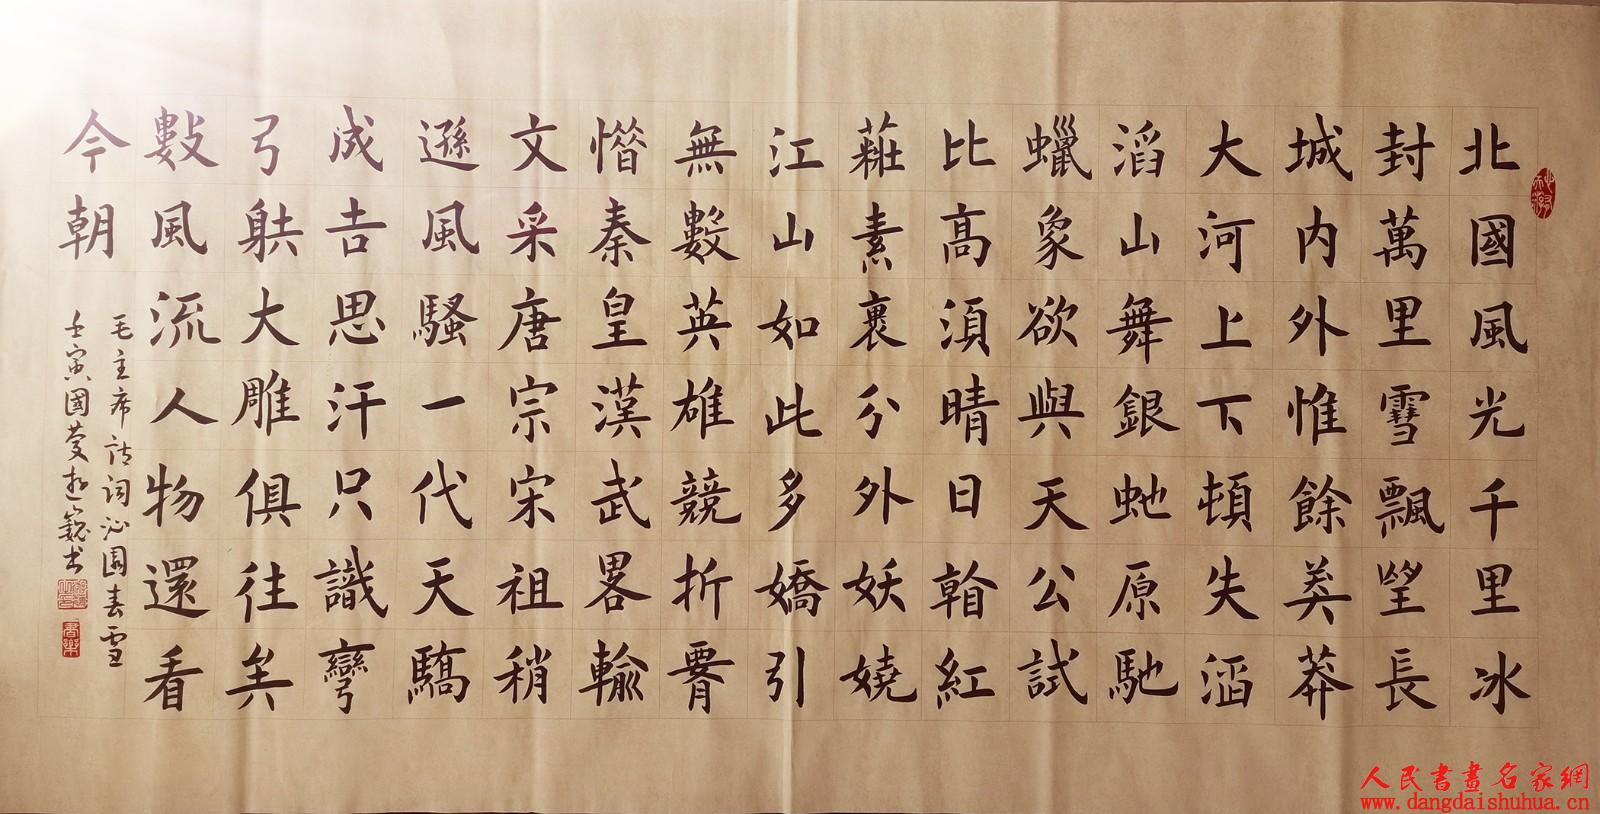 北國風光千里冰
封萬里雪飄望長
城内外惟餘莽莽
大河上下頓失滔
滔山舞銀虵原馳
蠟象欲與天公試
比高須晴日看紅
蘓素裹分外妖嬈
江山如此多嬌引
無數英雄競折腰
惜秦皇漢武畧輸
文采唐宗宋祖稍
遜風騷一代天驕
成吉思汗只識彎
弓躲大雕俱往矣
數風流人物還看
今朝
毛主席诗词沁園春雪
壬寅國慶巍书
人民書畫名家網
www.dangdaishuhua.cn